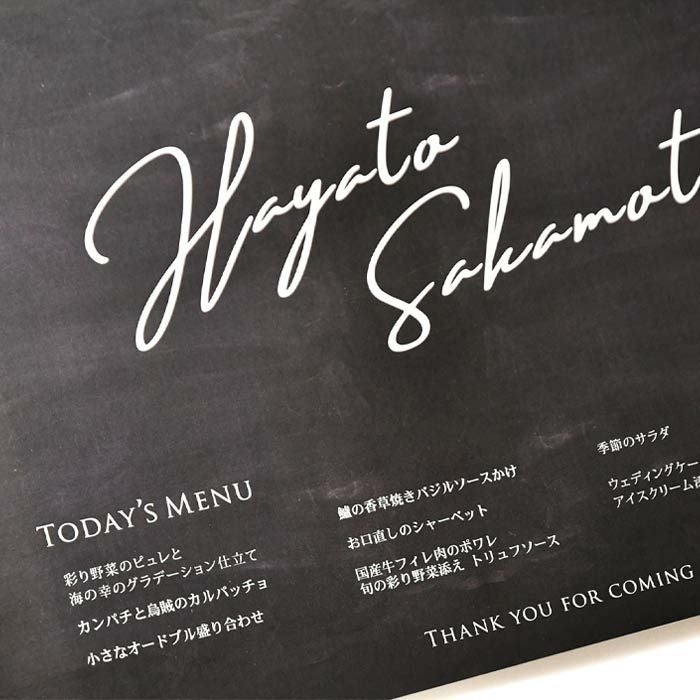 Hayato
Sakamot
TODAY'S MENU
彩り野菜のピュレと
海の幸のグラデーション仕立て
カンパチと烏賊のカルパッチョ
小さなオードブル盛り合わせ
鱸の香草焼きバジルソースかけ
お口直しのシャーベット
国産牛フィレ肉のポワレ
旬の彩り野菜添え トリュフソース
季節のサラダ
ウェディングケー
アイスクリーム
THANK YOU FOR COMING